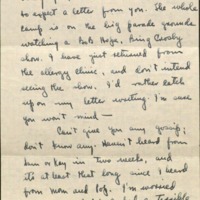 to expect a letter from you. The whole
camp is on the big parade grounds
watching a Bob Hope, Bing Crosby
show. I have just returned from
the allergy clinic, and don't intend
seeing the show. I'd rather catch
up on my letter writing. I'm sure
you won't mind —
Can't give you any gossip;
don't know any. Haven't heard from
him or Kay in two weeks, and
it's at least that long since I heard
from Mom and Pop. I'm worried